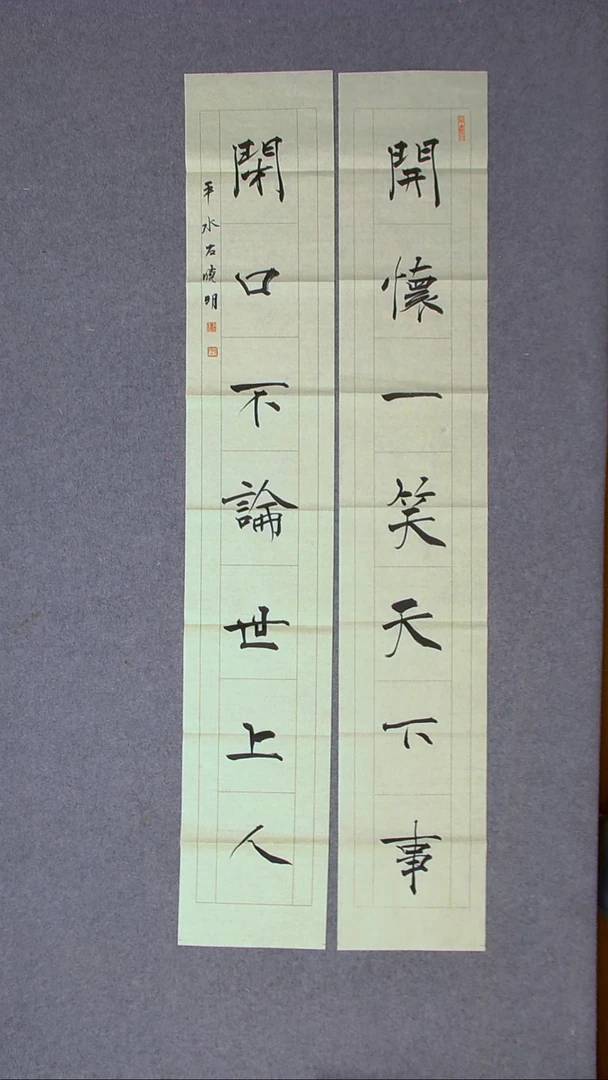 開懷一笑天下事
閉口不論世上人
平水左曉明